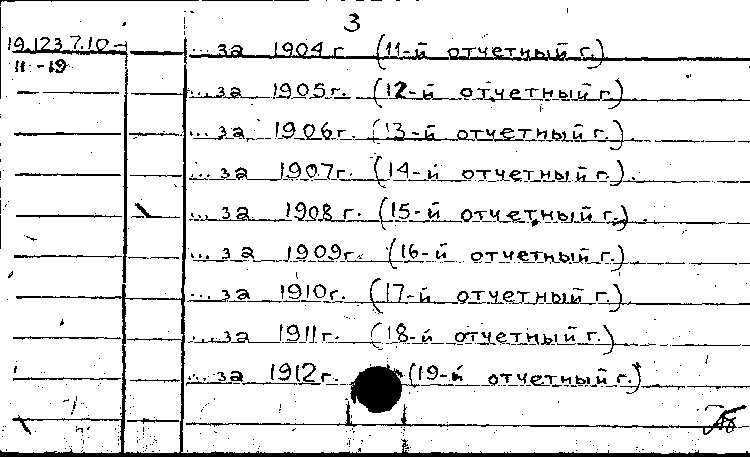 3
19.123.7.10- ...за 1904 г. (11-й отчетный г.)
11-19
...за 1905г. (12-й отчетный г.)
...за 1906г. (13-й отчетный г.)
...за 1907г. (14-й отчетный г.).
...за 1908 г. (15-й отчетный г.).
...за 1909г. (16-й отчетный г.).
...за 1910г. (17-й отчетный г.)
...за 1911г. (18-й отчетный г.)
...за 1912г. (19-й отчетный г.)